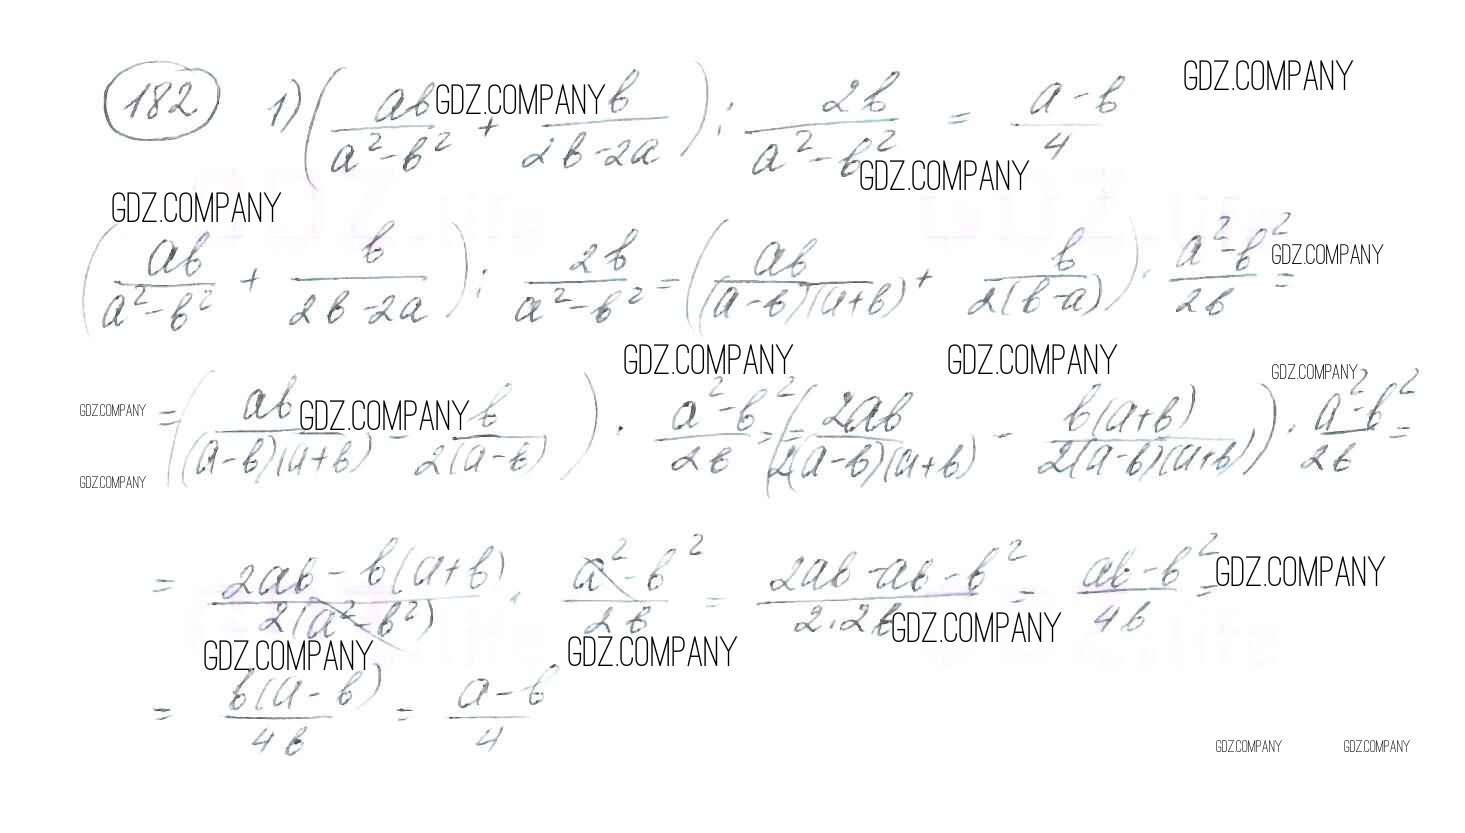 182 1) (ab/(a²-b²) + b/(2b-2a)) : 2b/(a²-b²) = (a-b)/4
GDZ.COMPANY GDZ.COMPANY
GDZ.COMPANY GDZ.COMPANY
(ab/(a²-b²) + b/(2b-2a)) : 2b/(a²-b²) = (ab/((a-b)(a+b)) + b/(2(b-a))) · (a²-b²)/2b =
GDZ.COMPANY
GDZ.COMPANY GDZ.COMPANY GDZ.COMPANY
= (ab/((a-b)(a+b)) - b/(2(a-b))) · (a²-b²)/2b = = (2ab/(2(a-b)(a+b)) - b(a+b)/(2(a-b)(a+b))) · (a²-b²)/2b =
GDZ.COMPANY GDZ.COMPANY
GDZ.COMPANY
= (2ab - b(a+b))/(2(a²-b²)) · (a²-b²)/2b = (2ab-ab-b²)/(2·2b) = (ab-b²)/4b =
GDZ.COMPANY
GDZ.COMPANY GDZ.COMPANY GDZ.COMPANY
= b(a-b)/4b = (a-b)/4
GDZ.COMPANY GDZ.COMPANY